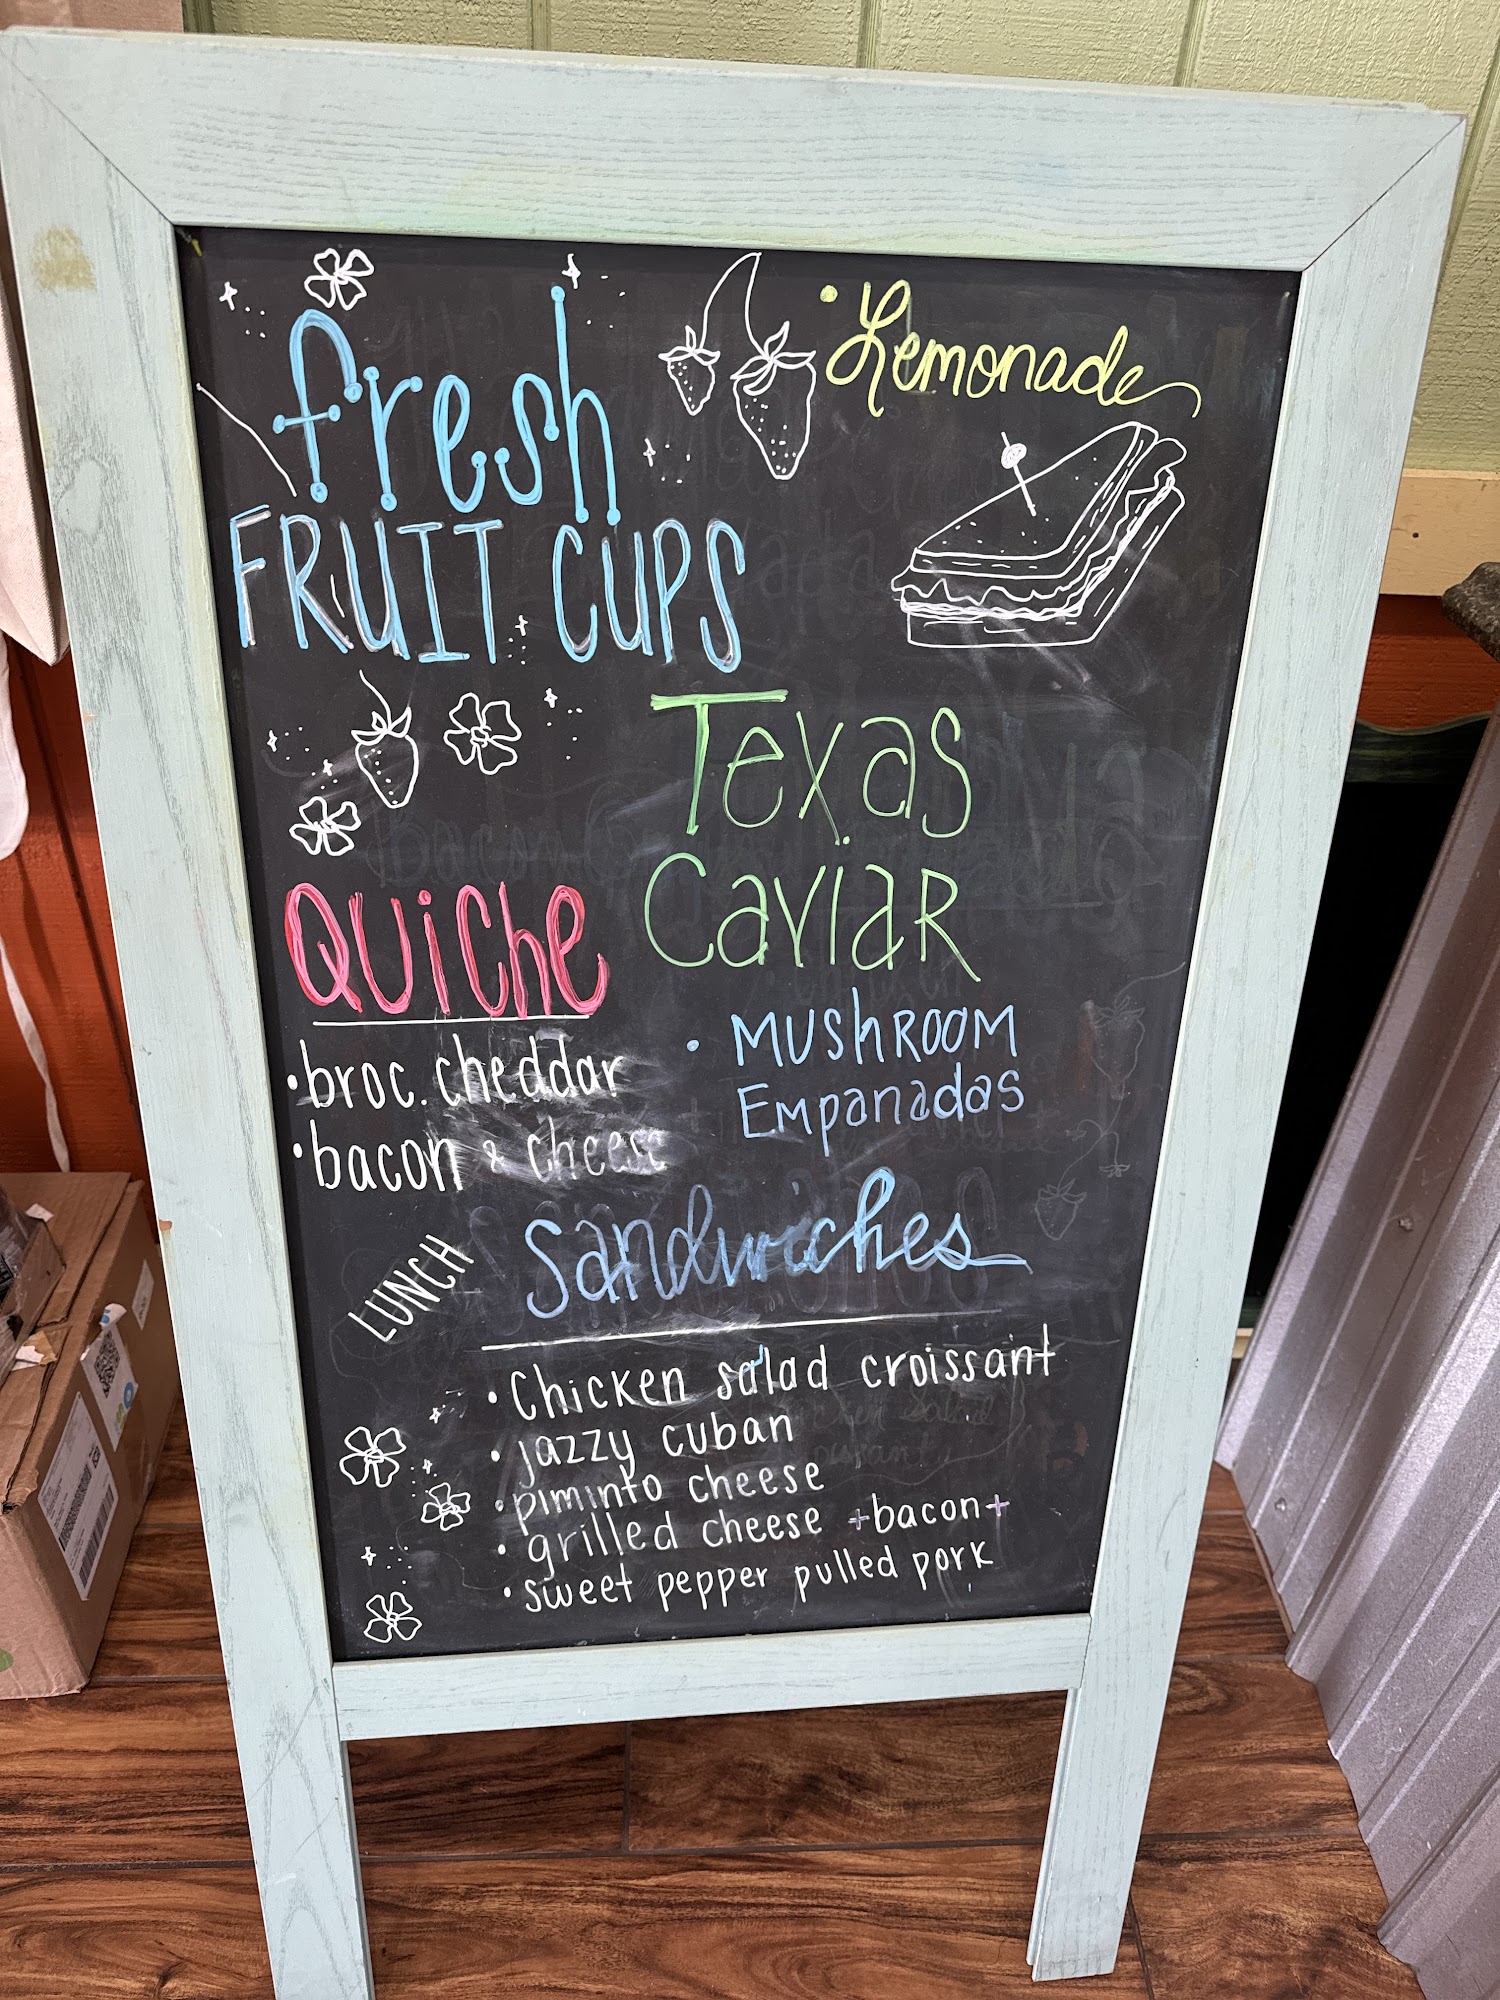 fresh
FRUIT CUPS
• Lemonade
Texas
Caviar
Quiche
• broc. cheddar
• bacon & cheese
• Mushroom
Empanadas
LUNCH
Sandwiches
• Chicken salad croissant
• jazzy cuban
• piminto cheese
• grilled cheese +bacon+
• sweet pepper pulled pork